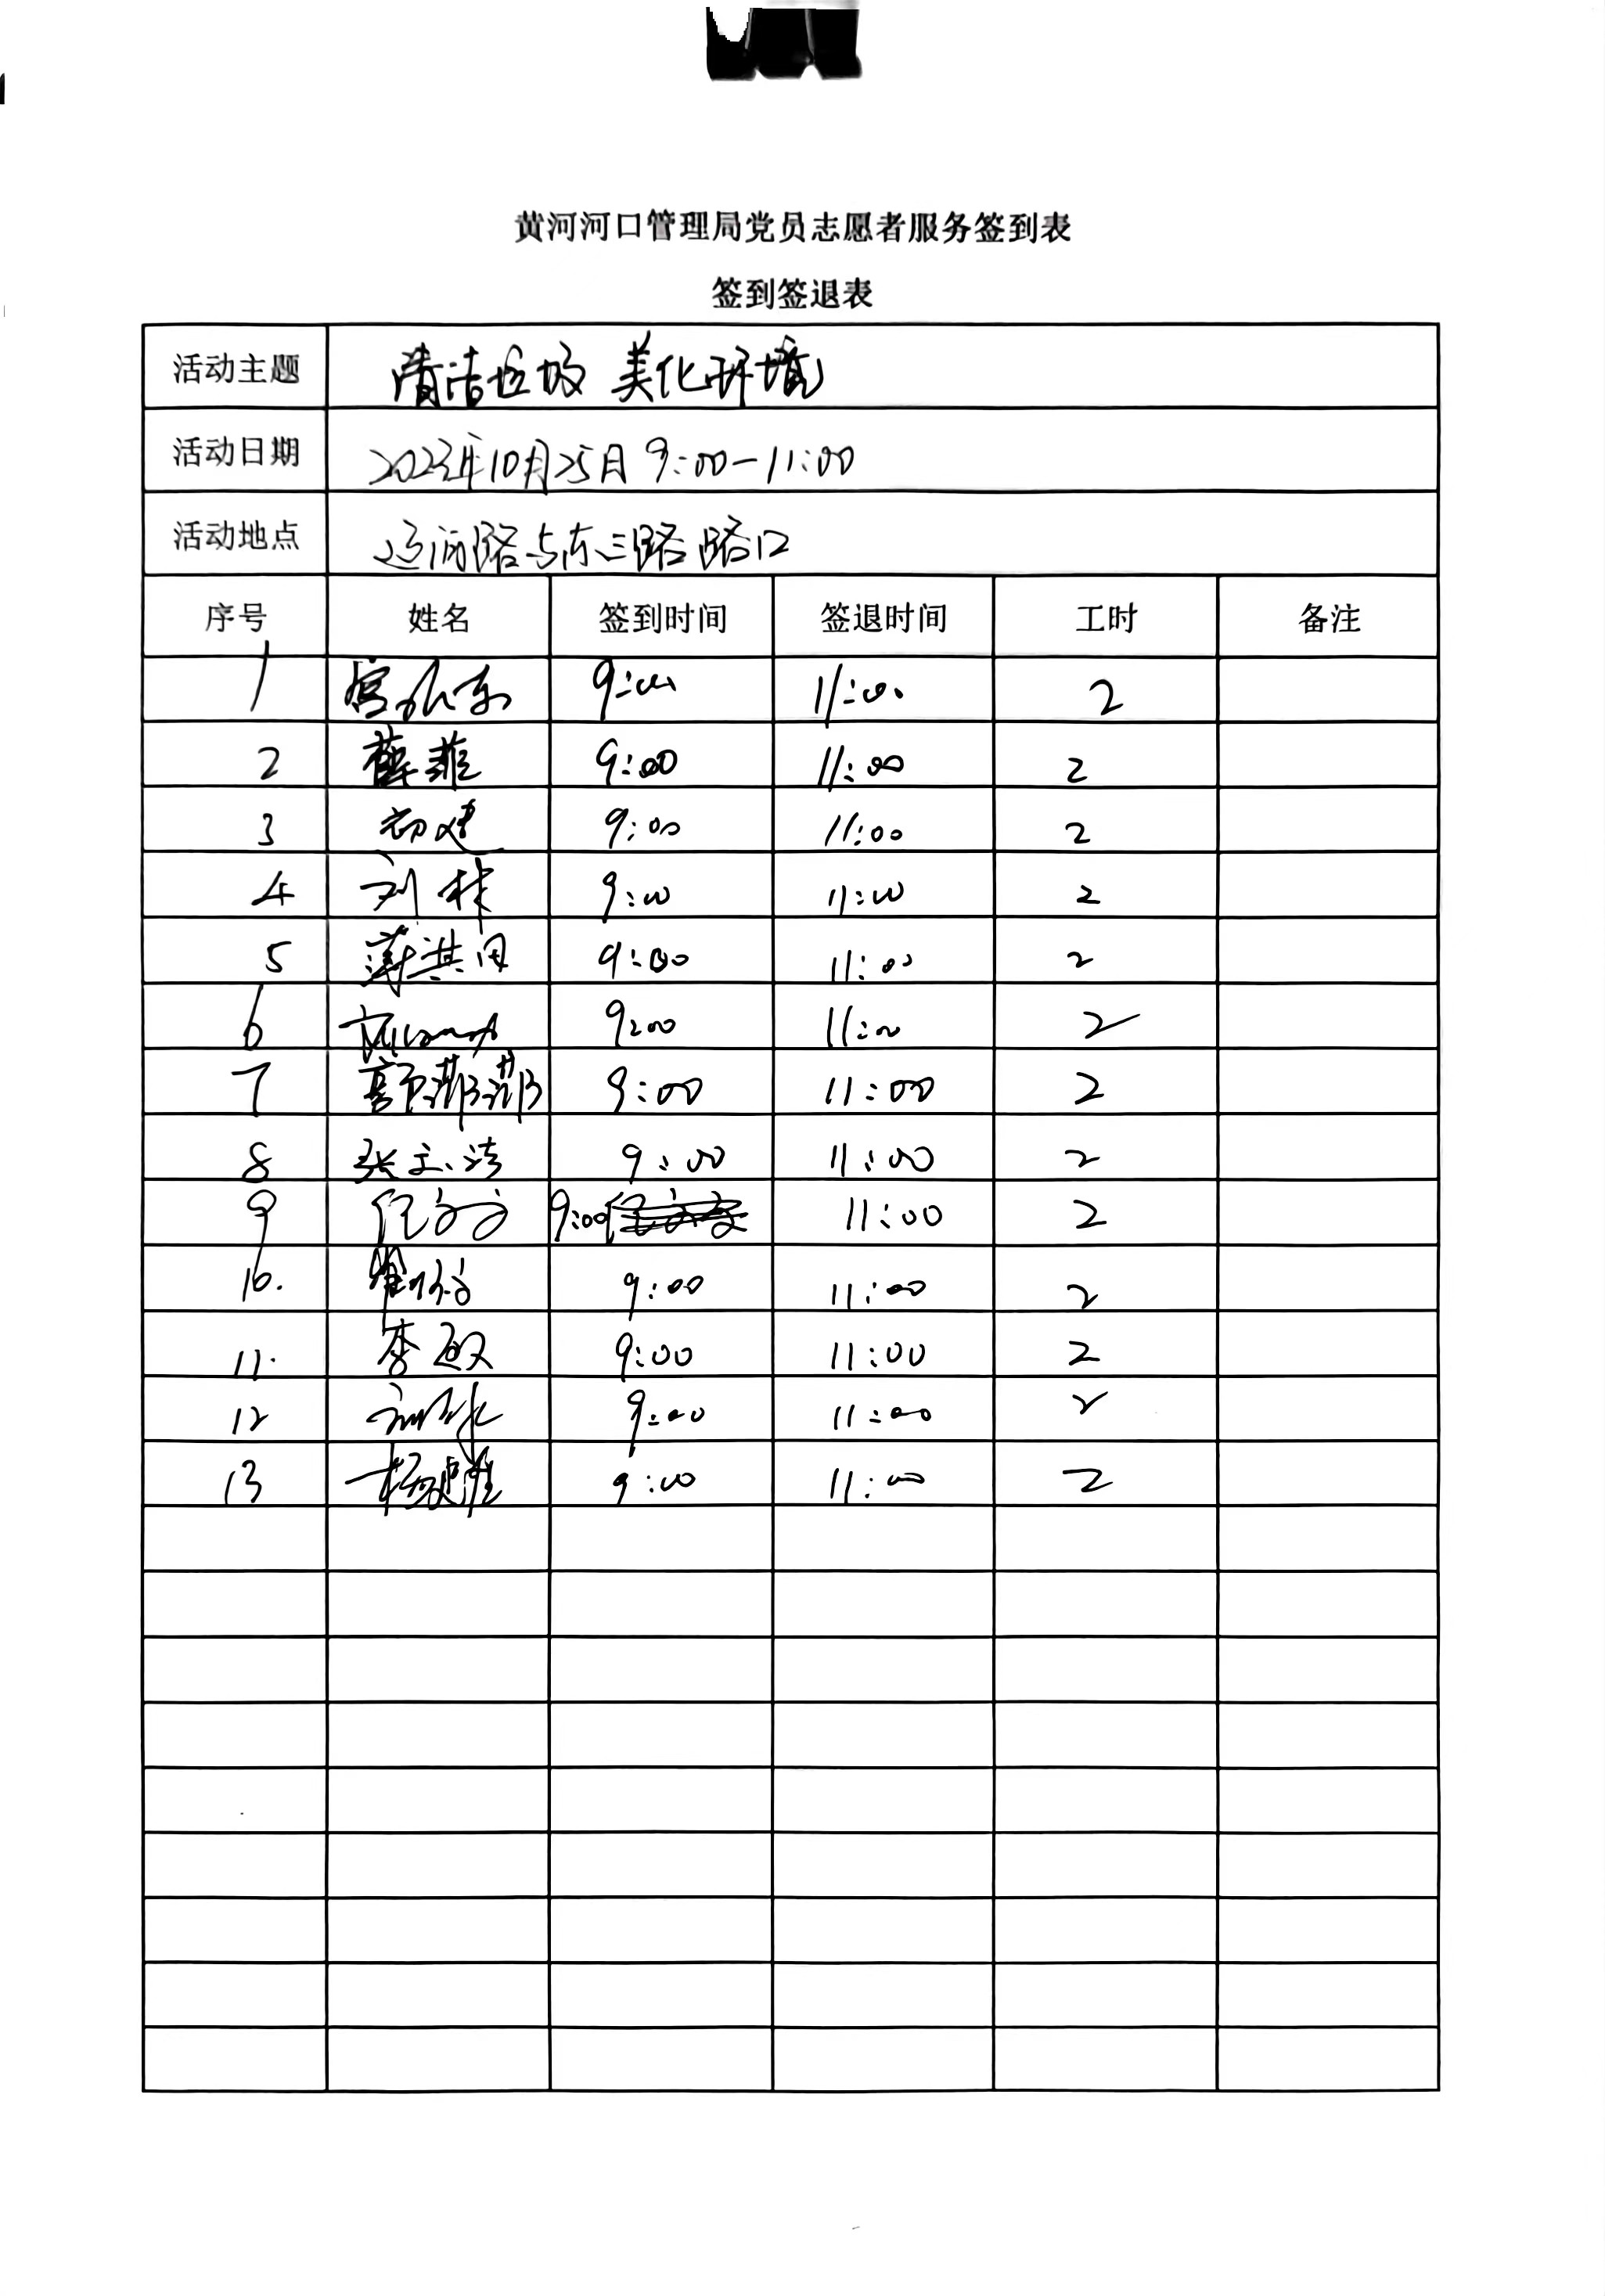 黄河河口管理局党员志愿者服务签到表
签到签退表
活动主题 清洁垃圾 美化环境
活动日期 2023年10月25日 9:00—11:00
活动地点 辽河路与东三路路口
序号 姓名 签到时间 签退时间 工时 备注
1 9:00 11:00 2
2 薛菲 9:00 11:00 2
3 9:00 11:00 2
4 刘林 9:00 11:00 2
5 薄其同 9:00 11:00 2
6 9:00 11:00 2
7 9:00 11:00 2
8 张文涛 9:00 11:00 2
9 任文文 9:00 11:00 2
10. 9:00 11:00 2
11. 李敏 9:00 11:00 2
12 9:00 11:00 2
13 杨建雅 9:00 11:00 2